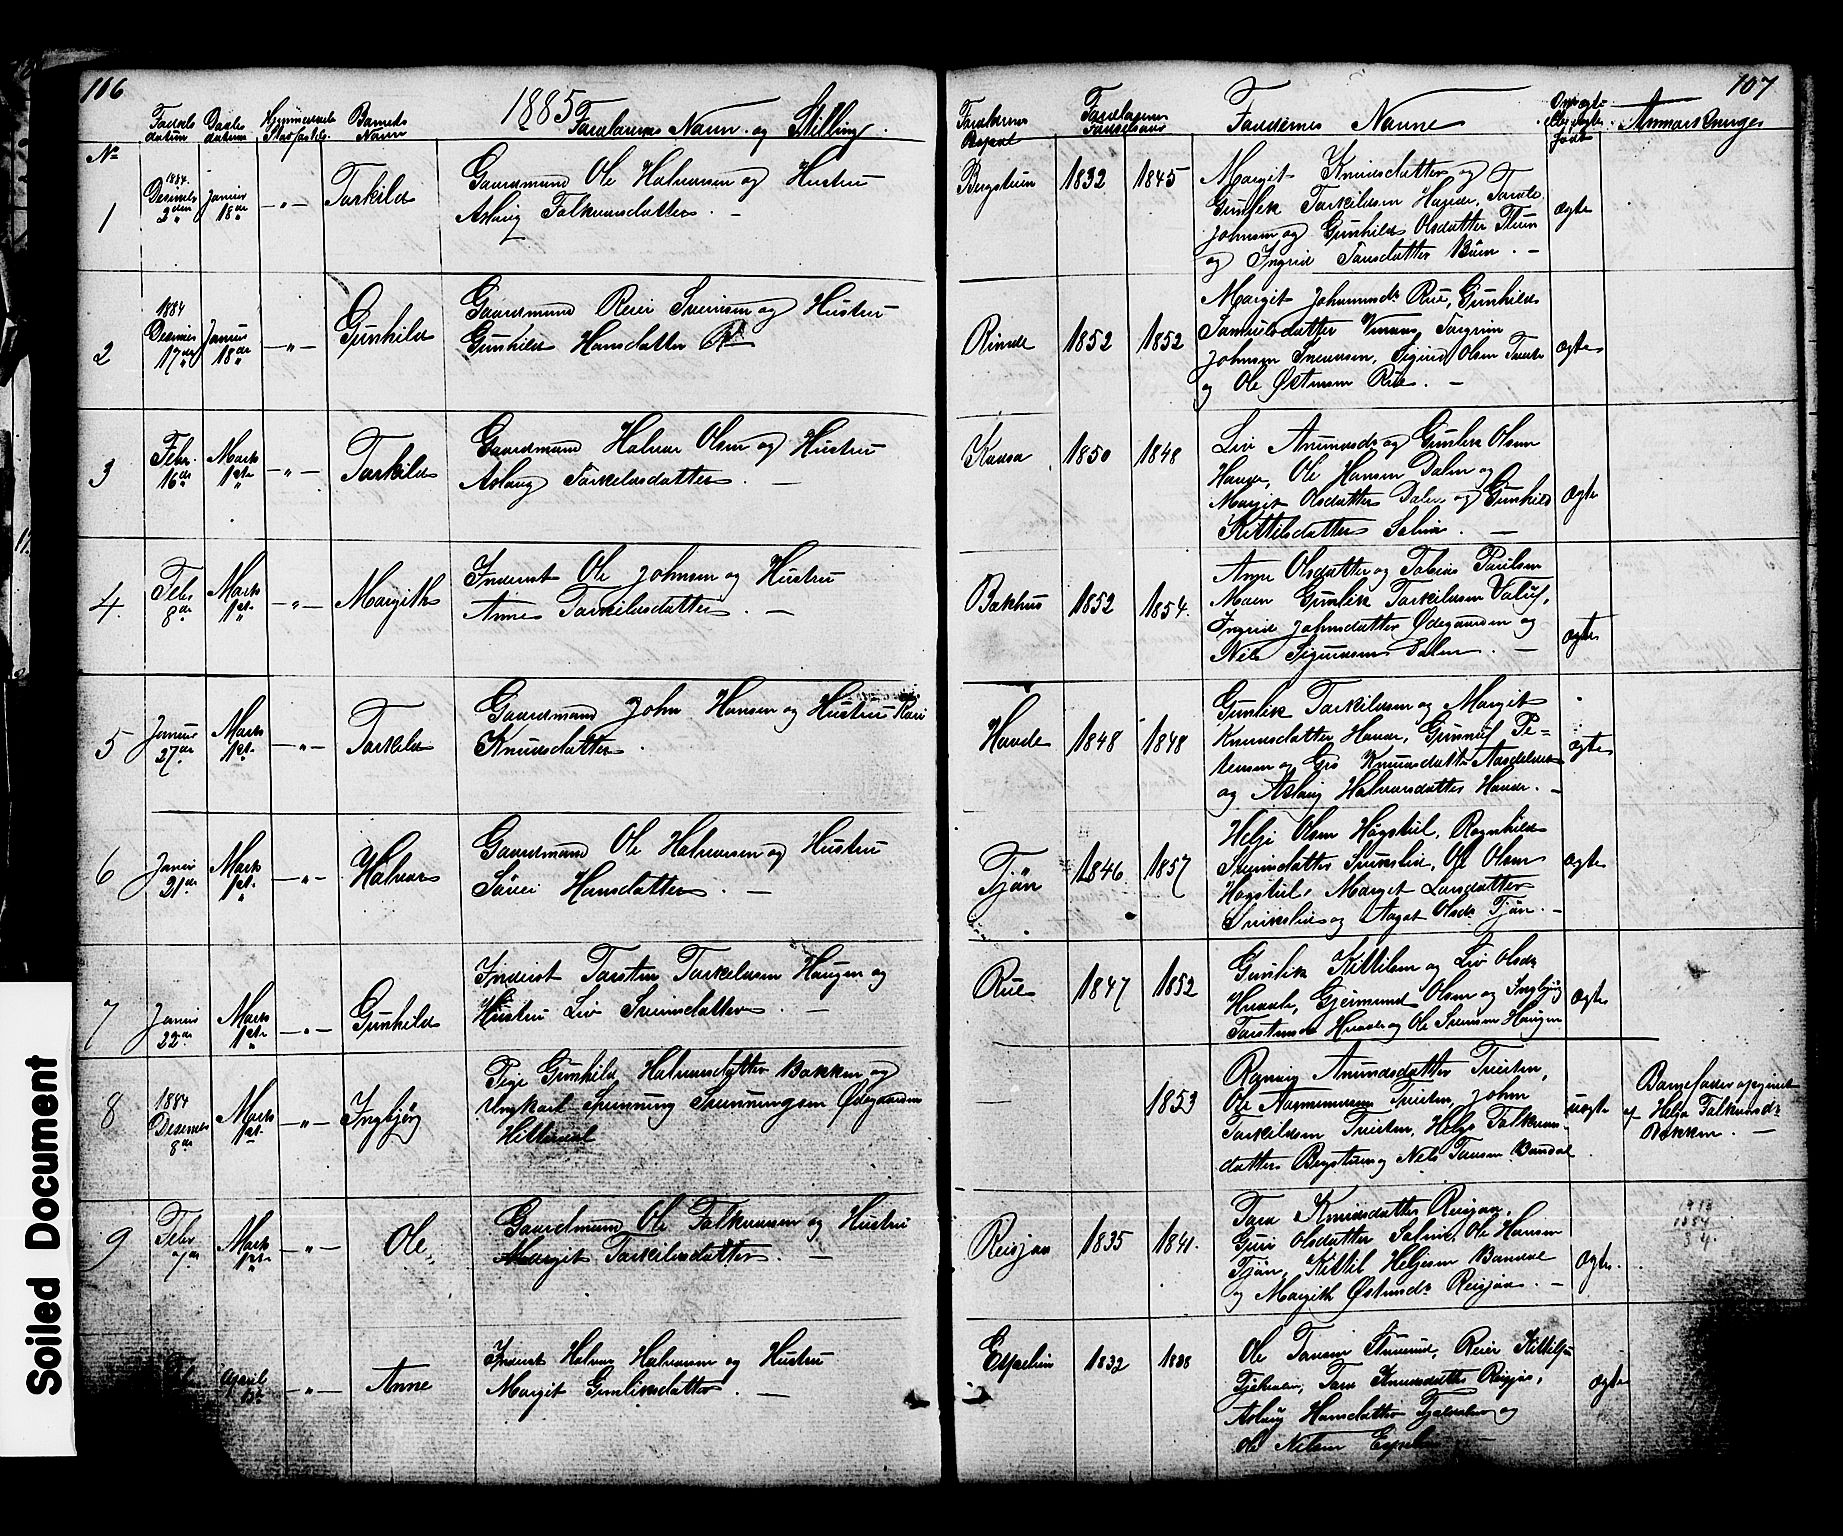 106
1885
107
Fødsels datum
Daabs datum
Hjemmedøbt Stadfæstels
Barnets Navn
Forældrenes Navn og Stilling.
Forældrenes Bopæl
Forældrenes Fødselsaar
Faddernes Navne
Anmærkninger
No
1
1884 Desember 3die
Januar 18de
— " —
Tarkild
Gaardmand Ole Halvorsen og Hustru
Aslaug Falkvarsdatter. —
Bergstuen
1832
1845
Margit Knudsdatter og
Gunlik Tarkildsen Havde, Tarste
Johnsen og Gunhild Olsdatter
og Ingrid Tarsdatter Buen. —
Ægte
2
1884 Desember 17de
Januar 18de
— " —
Gunhild
Gaardmand Reier Sveinsen og Hustru
Gunhild Hansdatter
Rinde
1852
1852
Margit Johannesdr Rue, Gunhild
Samuelsdatter Torgrim
Johnsen Sigurd Olsen
og Ole Østensen Rue. —
Ægte
3
Febr 16de
Marts 1ste
— " —
Tarkild
Gaardmand Halvor Olsen og Hustru
Aslaug Tarkildsdatter. —
Kaasa
1850
1848
Liv Anundsdr og Gunlik Olsen
Hauge, Ole Hansen Dalen og
Margit Olsdatter Dalen og Gunhild
Kittilsdatter —
Ægte
4.
Febr 8de
Marts 1ste
— " —
Margith
Inderst Ole Johnsen og Hustru
Anne Tarkildsdatter. —
Bakhus
1852
1854.
Anne Olsdatter og Tobias Paulsen
Moen Gunlik Tarkildsen
Ingrid Johnsdatter Ødegaarden og
Nils Sigurdsen Dalen. —
Ægte
5
Januar 27de
Marts 1ste
— " —
Tarkild
Gaardmand John Hansen og Hustru Kari
Knudsdatter.
Havde
1848
1848
Gunlik Tarkildsen og Margit
Knudsdatter Havde, Gunnuf Pe-
tersen og Gro Knudsdatter
og Aslaug Halvorsdatter Havde. —
Ægte
6
Januar 21de
Marts 1ste
— " —
Halvor
Gaardmand Ole Halvorsen og Hustru
Hansdatter. —
Tjøn
1846
1857
Helje Olsen Høgstul, Ragnhild
Sveinsdatter Ole Olsen
Høgstul, Margit Larsdatter
og Aagot Olsdr Tjøn. —
Ægte
7
Januar 22de
Marts 1ste
— " —
Gunhild
Inderst Tarsten Tarkildsen Haugen og
Hustru Liv Sveinsdatter. —
Rue
1847
1852
Gunlik Kittilsen og Liv Olsdr
Gjermund Olsen og Ingbjørg
Tarstensdr og Ole Svensen Haugen
Ægte
8
1884 Desember 8de
Marts 1ste
— " —
Ingbjørg
Pige Gunhild Halvorsdatter Bakken og
Ungkarl Svenning Svenningsen Ødegaarden
Hitterdal
—
1853
Ranvig Anundsdatter Treiten,
Ole Aasmundsen Treiten, John
Tarkildsen Treiten, Helge Falkvars-
datter Bergstuen og Nils Tarsen Bandal
uægte
Barnefader opgivet
af Helge Falkvarsdr
Bakken. —
9
Febr 7de
Marts 1ste
— " —
Ole
Gaardmand Ole Falkvarsen og Hustru
Margit Tarkildsdatter. —
Reisjaa
1835
1841.
Tara Knudsdatter Reisjaa,
Guri Olsdatter Ole Hansen
Tjøn, Kittil Heljesen Bandal
og Margith Østensdr Reisjaa. —
Ægte.
April
— " —
Anne
Inderst Halvor Halvorsen og Hustru
Margit Gunliksdatter. —
Espelien
1832
1838
Ole Tarsen Reier Kittilsen
Tara Knudsdatter Reisjaa,
Aslaug Hansdatter og
Ole Nilsen
Ægte
Soiled Document